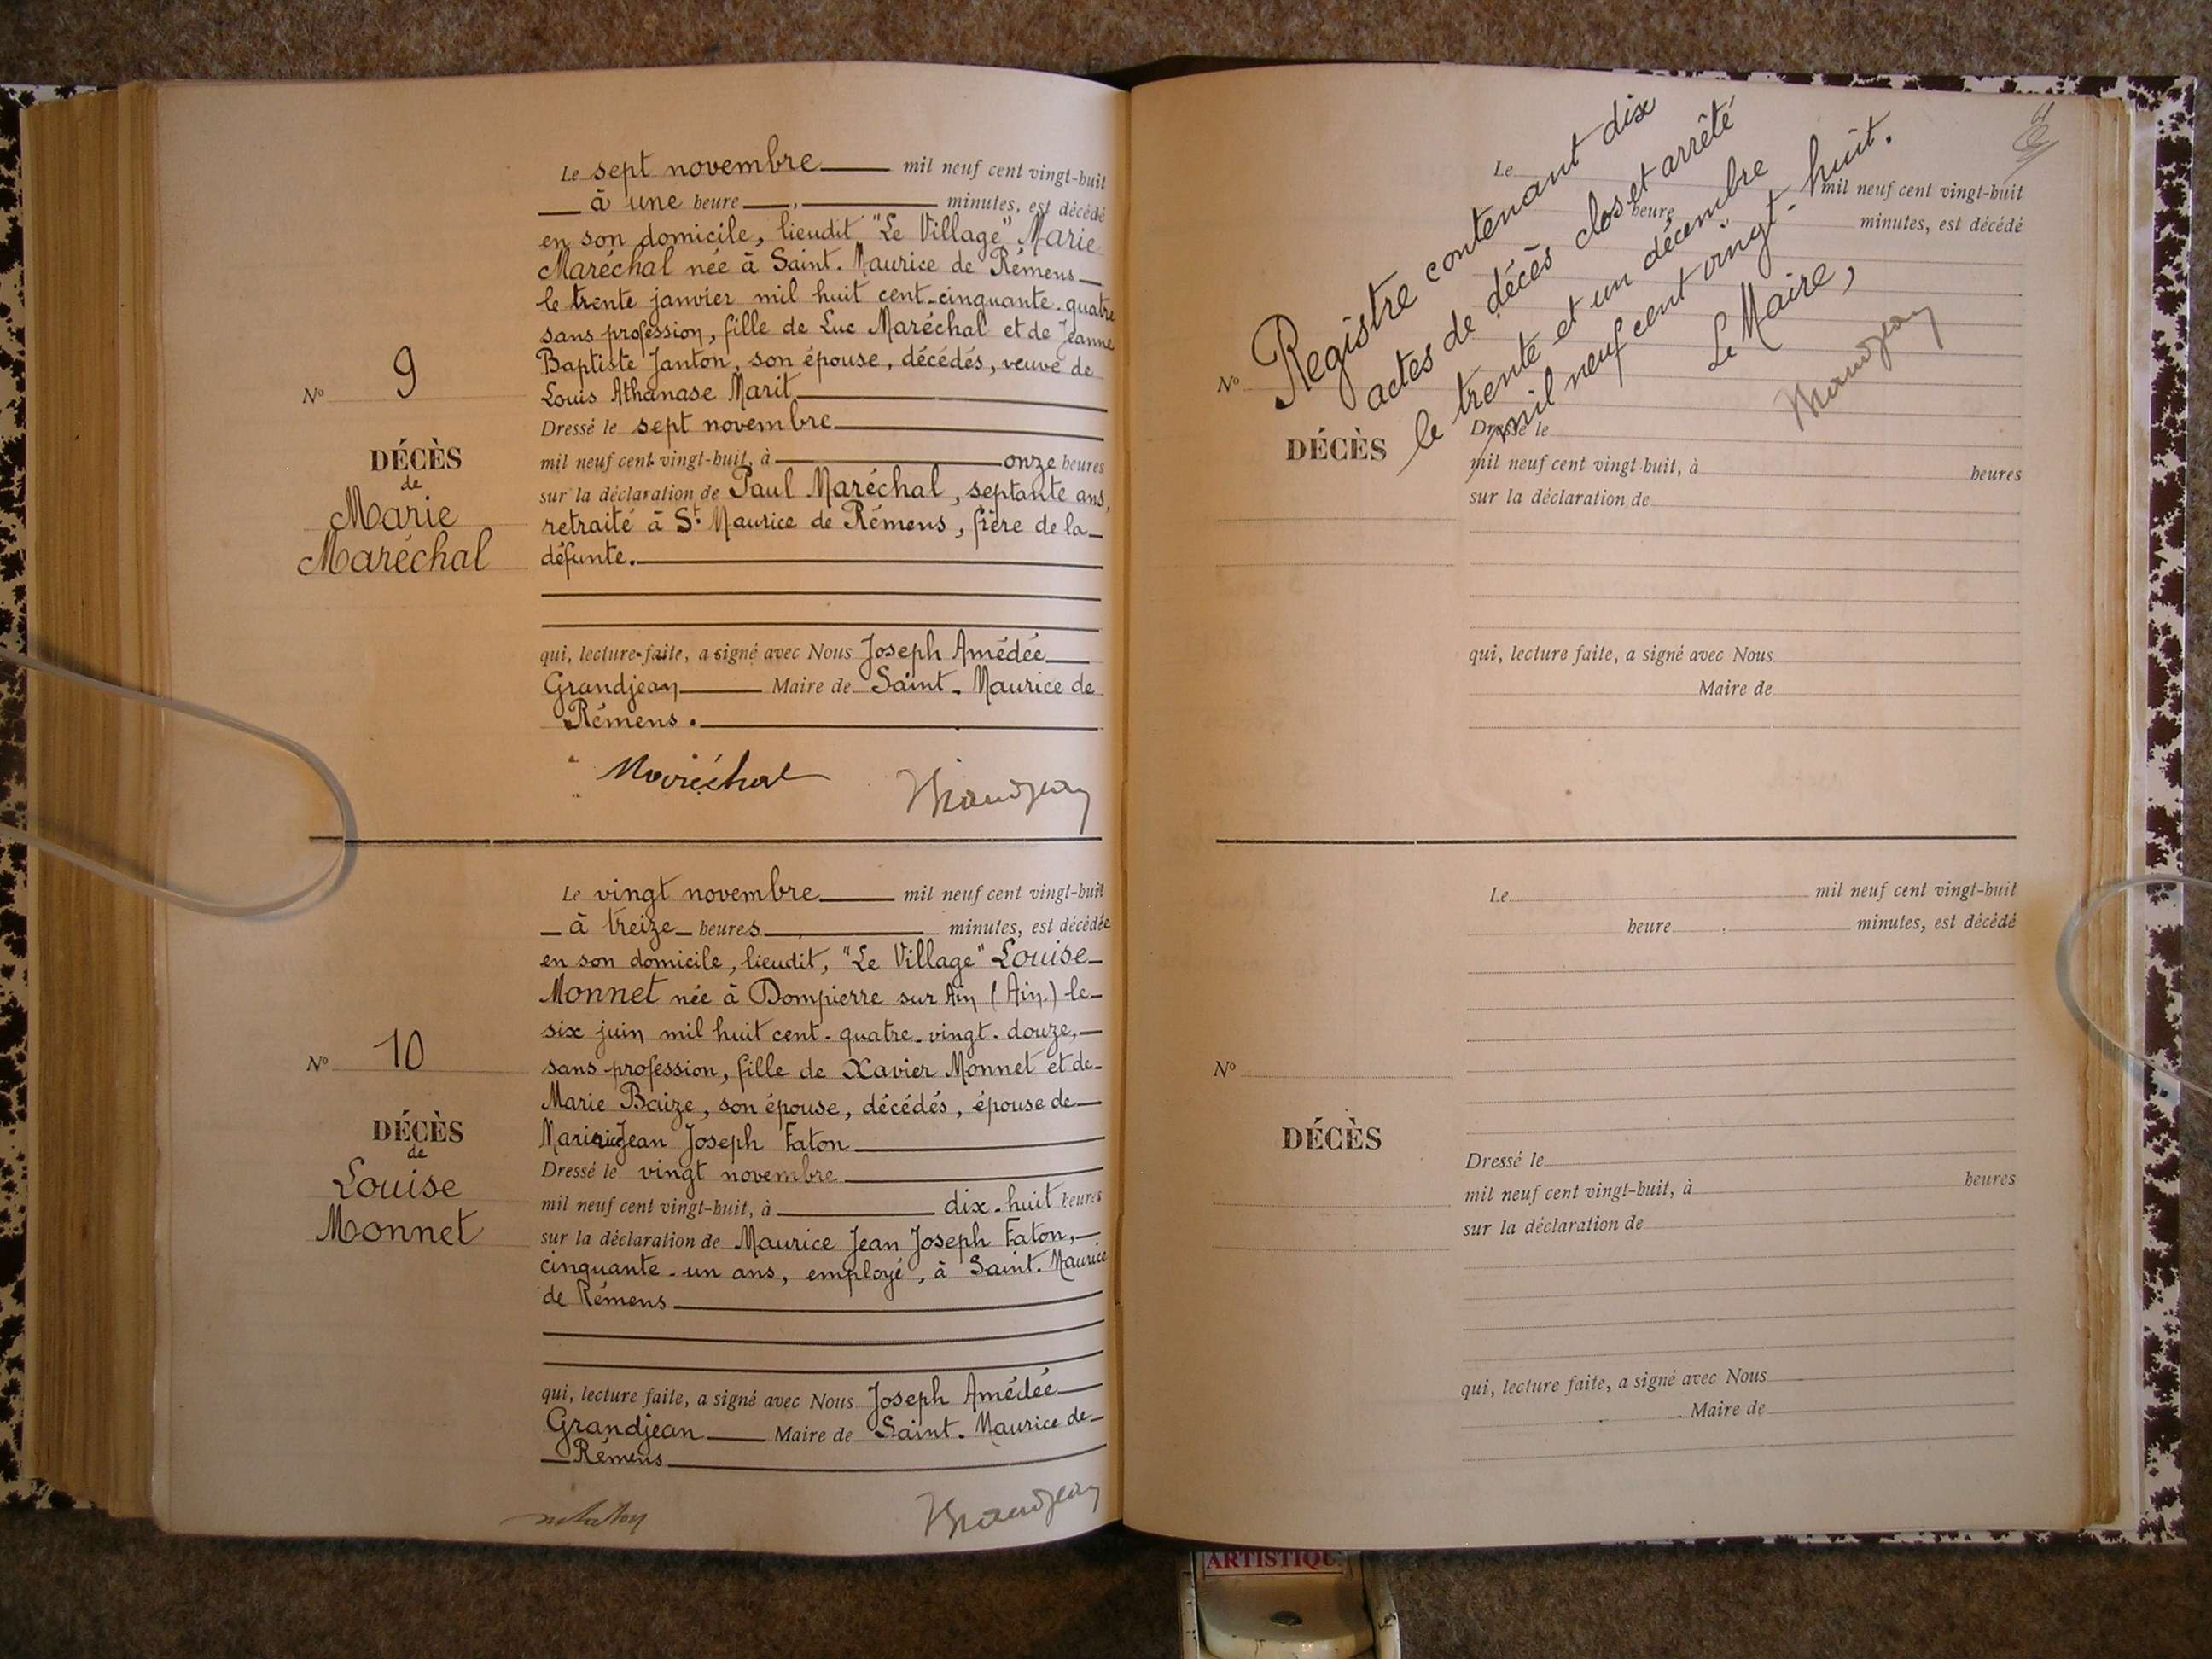 Le sept novembre mil neuf cent vingt-huit
à une heure , minutes, est décédé
en son domicile, lieudit "Le Village" Marie
Maréchal née à Saint-Maurice de Rémens
le trente janvier mil huit cent-cinquante-quatre
sans profession, fille de Luc Maréchal et de Jeanne
Baptiste Janton, son épouse, décédés, veuve de
Louis Athanase Marit
Dressé le sept novembre
mil neuf cent vingt-huit, à onze heures
sur la déclaration de Paul Maréchal, septante ans,
retraité à St Maurice de Rémens, frère de la
défunte.
qui, lecture faite, a signé avec Nous Joseph Amédée
Grandjean Maire de Saint-Maurice de
Rémens.
Maréchal Grandjean
No 9
DÉCÈS
de
Marie
Maréchal
Le vingt novembre mil neuf cent vingt-huit
à treize heures minutes, est décédée
en son domicile, lieudit, "Le Village" Louise
Monnet née à Dompierre sur Ain (Ain) le
six juin mil huit cent-quatre-vingt-douze,
sans profession, fille de Xavier Monnet et de
Marie Baize, son épouse, décédés, épouse de
Jean Joseph Faton
Dressé le vingt novembre
mil neuf cent vingt-huit, à dix-huit heures
sur la déclaration de Maurice Jean Joseph Faton,
cinquante-un ans, employé, à Saint-Maurice
de Rémens
qui, lecture faite, a signé avec Nous Joseph Amédée
Grandjean Maire de Saint-Maurice de
Rémens
Grandjean
No 10
DÉCÈS
de
Louise
Monnet
Registre contenant dix
actes de décès clos et arrêté
le trente et un décembre
mil neuf cent vingt-huit.
Le Maire,
Grandjean
Le mil neuf cent vingt-huit
heure minutes, est décédé
No
DÉCÈS
Dressé le
mil neuf cent vingt-huit, à heures
sur la déclaration de
qui, lecture faite, a signé avec Nous
Maire de
Le mil neuf cent vingt-huit
heure , minutes, est décédé
No
DÉCÈS
Dressé le
mil neuf cent vingt-huit, à heures
sur la déclaration de
qui, lecture faite, a signé avec Nous
Maire de
ARTISTIQU